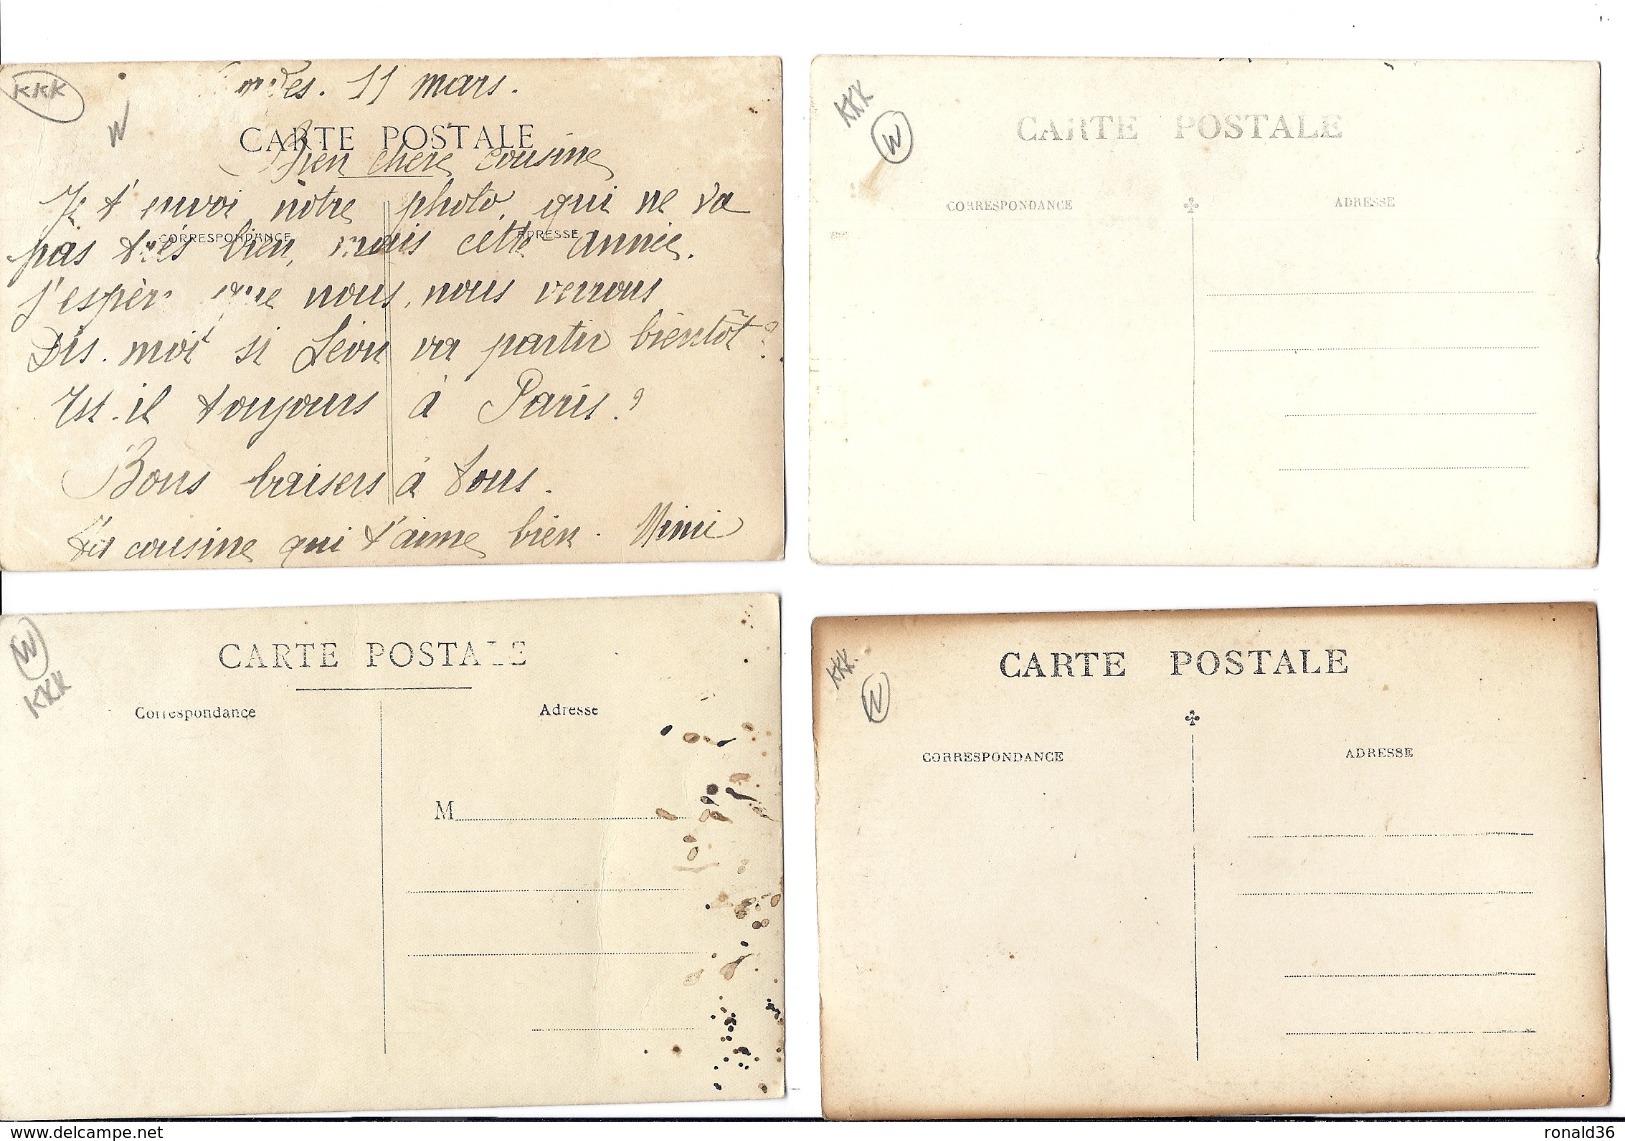 KKK
W
11 mars.
CARTE POSTALE
Bien chère cousine
Je t'envoi notre photo, qui ne va
CORRESPONDANCE
ADRESSE
pas très bien, mais cette année.
J'espère que nous, nous verrons
Dis-moi si Léon va partir bientôt?
Est-il toujours à Paris?
Bons baisers à tous.
Ta cousine qui t'aime bien. Mimi
KKK
W
CARTE POSTALE
CORRESPONDANCE
ADRESSE
W
KKK
CARTE POSTALE
Correspondance
Adresse
M
KKK
W
CARTE POSTALE
CORRESPONDANCE
ADRESSE
www.delcampe.net
ronald36